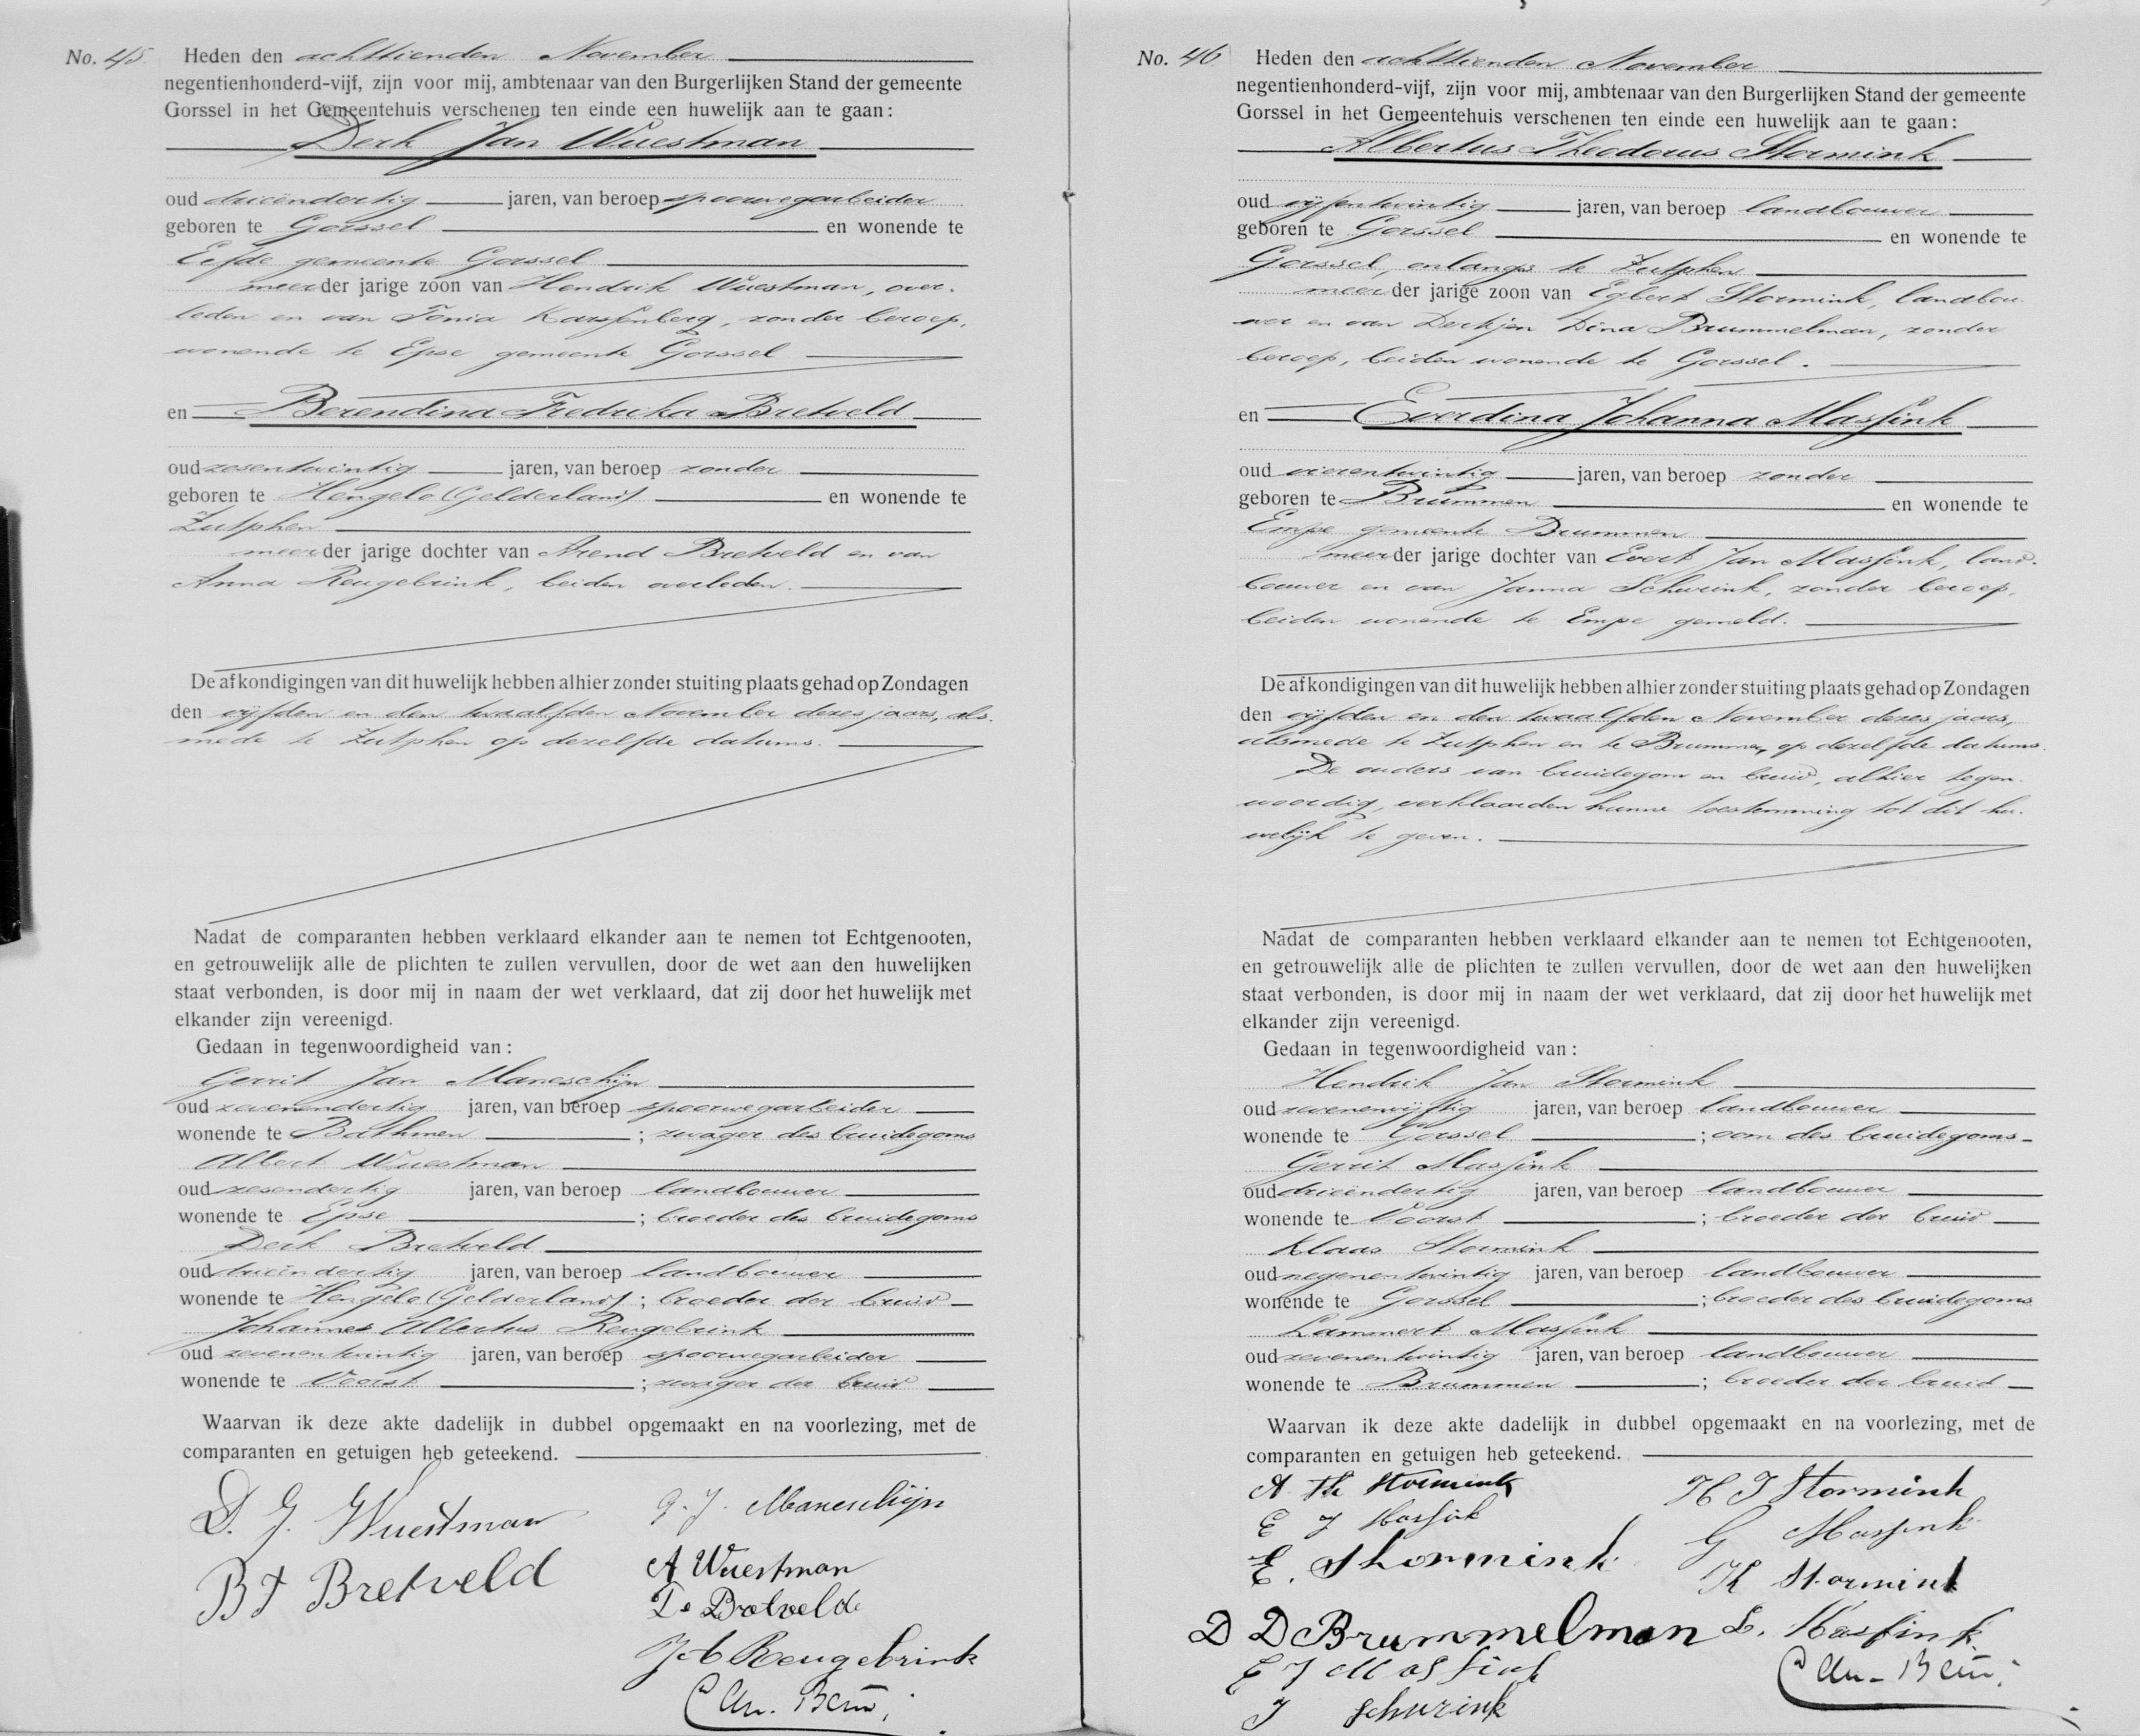 No. 45. Heden den achttienden November
negentienhonderd-vijf, zijn voor mij, ambtenaar van den Burgerlijken Stand der gemeente
Gorssel in het Gemeentehuis verschenen ten einde een huwelijk aan te gaan:
Derk Jan Wuestman
oud drieëndertig jaren, van beroep spoorwegarbeider
geboren te Gorssel en wonende te
Eefde gemeente Gorssel
meerder jarige zoon van Hendrik Wuestman, over-
leden en van Tonia Karssenberg, zonder beroep,
wonende te Epse gemeente Gorssel
en Berendina Fredrika Bretveld
oud zesentwintig jaren, van beroep zonder
geboren te Hengelo (Gelderland) en wonende te
Zutphen
meerder jarige dochter van Arend Bretveld en van
Anna Reugebrink, beiden overleden.
De afkondigingen van dit huwelijk hebben alhier zonder stuiting plaats gehad op Zondagen
den vijfden en den twaalfden November dezes jaars, als-
mede te Zutphen op dezelfde datums.
Nadat de comparanten hebben verklaard elkander aan te nemen tot Echtgenooten,
en getrouwelijk alle de plichten te zullen vervullen, door de wet aan den huwelijken
staat verbonden, is door mij in naam der wet verklaard, dat zij door het huwelijk met
elkander zijn vereenigd.
Gedaan in tegenwoordigheid van:
Gerrit Jan Maneschijn
oud zevenendertig jaren, van beroep spoorwegarbeider
wonende te Bathmen ; zwager des bruidegoms
Albert Wuestman
oud zesendertig jaren, van beroep landbouwer
wonende te Epse ; broeder des bruidegoms
Derk Bretveld
oud drieëndertig jaren, van beroep landbouwer
wonende te Hengelo (Gelderland) ; broeder der bruid
Johannes Albertus Reugebrink
oud zevenentwintig jaren, van beroep spoorwegarbeider
wonende te Voorst ; zwager der bruid
Waarvan ik deze akte dadelijk in dubbel opgemaakt en na voorlezing, met de
comparanten en getuigen heb geteekend.
D. J. Wuestman
G. J. Maneschijn
B F Bretveld
A Wuestman
D. Bretveld
J A Reugebrink
No. 46 Heden den achttienden November
negentienhonderd-vijf, zijn voor mij, ambtenaar van den Burgerlijken Stand der gemeente
Gorssel in het Gemeentehuis verschenen ten einde een huwelijk aan te gaan:
Albertus Theodorus Stormink
oud vijfentwintig jaren, van beroep landbouwer
geboren te Gorssel en wonende te
Gorssel, onlangs te Zutphen
meerder jarige zoon van Egbert Stormink, landbou-
wer en van Derkjen Dina Brummelman, zonder
beroep, beiden wonende te Gorssel.
en Everdina Johanna Massink
oud vierentwintig jaren, van beroep zonder
geboren te Brummen en wonende te
Empe gemeente Brummen
meerder jarige dochter van Evert Jan Massink, land-
bouwer en van Janna Schurink, zonder beroep,
beiden wonende te Empe gemeld.
De afkondigingen van dit huwelijk hebben alhier zonder stuiting plaats gehad op Zondagen
den vijfden en den twaalfden November dezes jaars,
alsmede te Zutphen en te Brummen, op dezelfde datums.
De ouders van bruidegom en bruid, alhier tegen-
woordig, verklaarden hunne toestemming tot dit hu-
welijk te geven.
Nadat de comparanten hebben verklaard elkander aan te nemen tot Echtgenooten,
en getrouwelijk alle de plichten te zullen vervullen, door de wet aan den huwelijken
staat verbonden, is door mij in naam der wet verklaard, dat zij door het huwelijk met
elkander zijn vereenigd.
Gedaan in tegenwoordigheid van:
Hendrik Jan Stormink
oud zevenenvijftig jaren, van beroep landbouwer
wonende te Gorssel ; oom des bruidegoms
Gerrit Massink
oud drieëndertig jaren, van beroep landbouwer
wonende te Voorst ; broeder der bruid
Klaas Stormink
oud negenentwintig jaren, van beroep landbouwer
wonende te Gorssel ; broeder des bruidegoms
Lammert Massink
oud zevenentwintig jaren, van beroep landbouwer
wonende te Brummen ; broeder der bruid
Waarvan ik deze akte dadelijk in dubbel opgemaakt en na voorlezing, met de
comparanten en getuigen heb geteekend.
A Th Stormink
H J Stormink
E J Massink
G Massink
E. Stormink
K Stormink
D D Brummelman
L. Massink
E J Massink
J Schurink